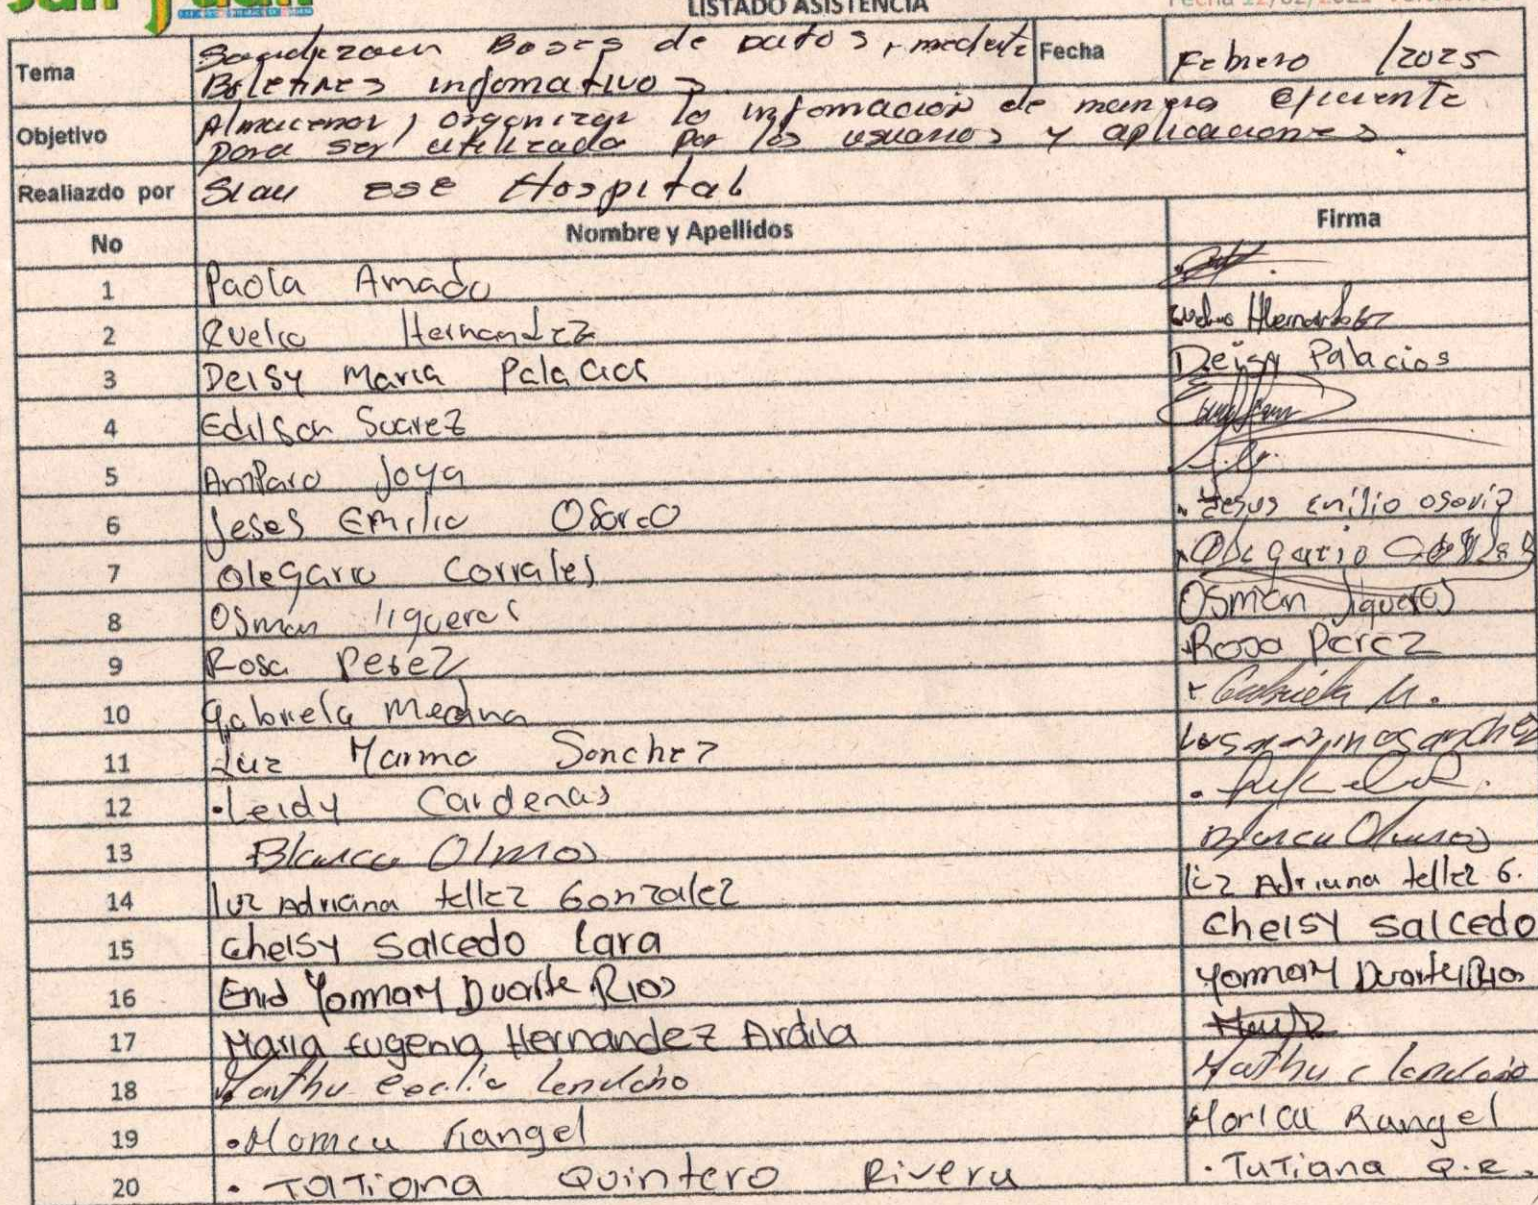 San Juan
LISTADO ASISTENCIA
Tema Bases de Datos, mediante
Boletines informativos
Fecha Febrero /2025
Objetivo Almacenar y organizar la informacion de manera eficiente
para ser utilizada por los usuarios y aplicaciones.
Realiazdo por Siau ESE Hospital
No Nombre y Apellidos Firma
1 Paola Amado
2 Hernandez Hernandez
3 Deisy Maria Palacios Deisy Palacios
4 Edilson Suarez
5 Amparo Joya
6 Jeses Emilio Osorio Jesus Emilio osorio
7 Olegario Corrales Olegario
8 Osman Jigueros Osman Jigueros
9 Rosa Perez Rosa Perez
10 Gabriela Medina Gabriela M.
11 Luz Marina Sanchez
12 Leidy Cardenas
13 Blanca Olmos Blanca Olmos
14 luz Adriana tellez Gonzalez luz Adriana tellez G.
15 Chelsy Salcedo Lara Chelsy Salcedo
16 Enid Yormary Duarte Rios Yormary Duarte Rios
17 Maria Eugenia Hernandez Ardila
18 Martha Cecilia Londoño Martha C Londoño
19 Rangel Rangel
20 Tatiana Quintero Rivera Tatiana Q.R.